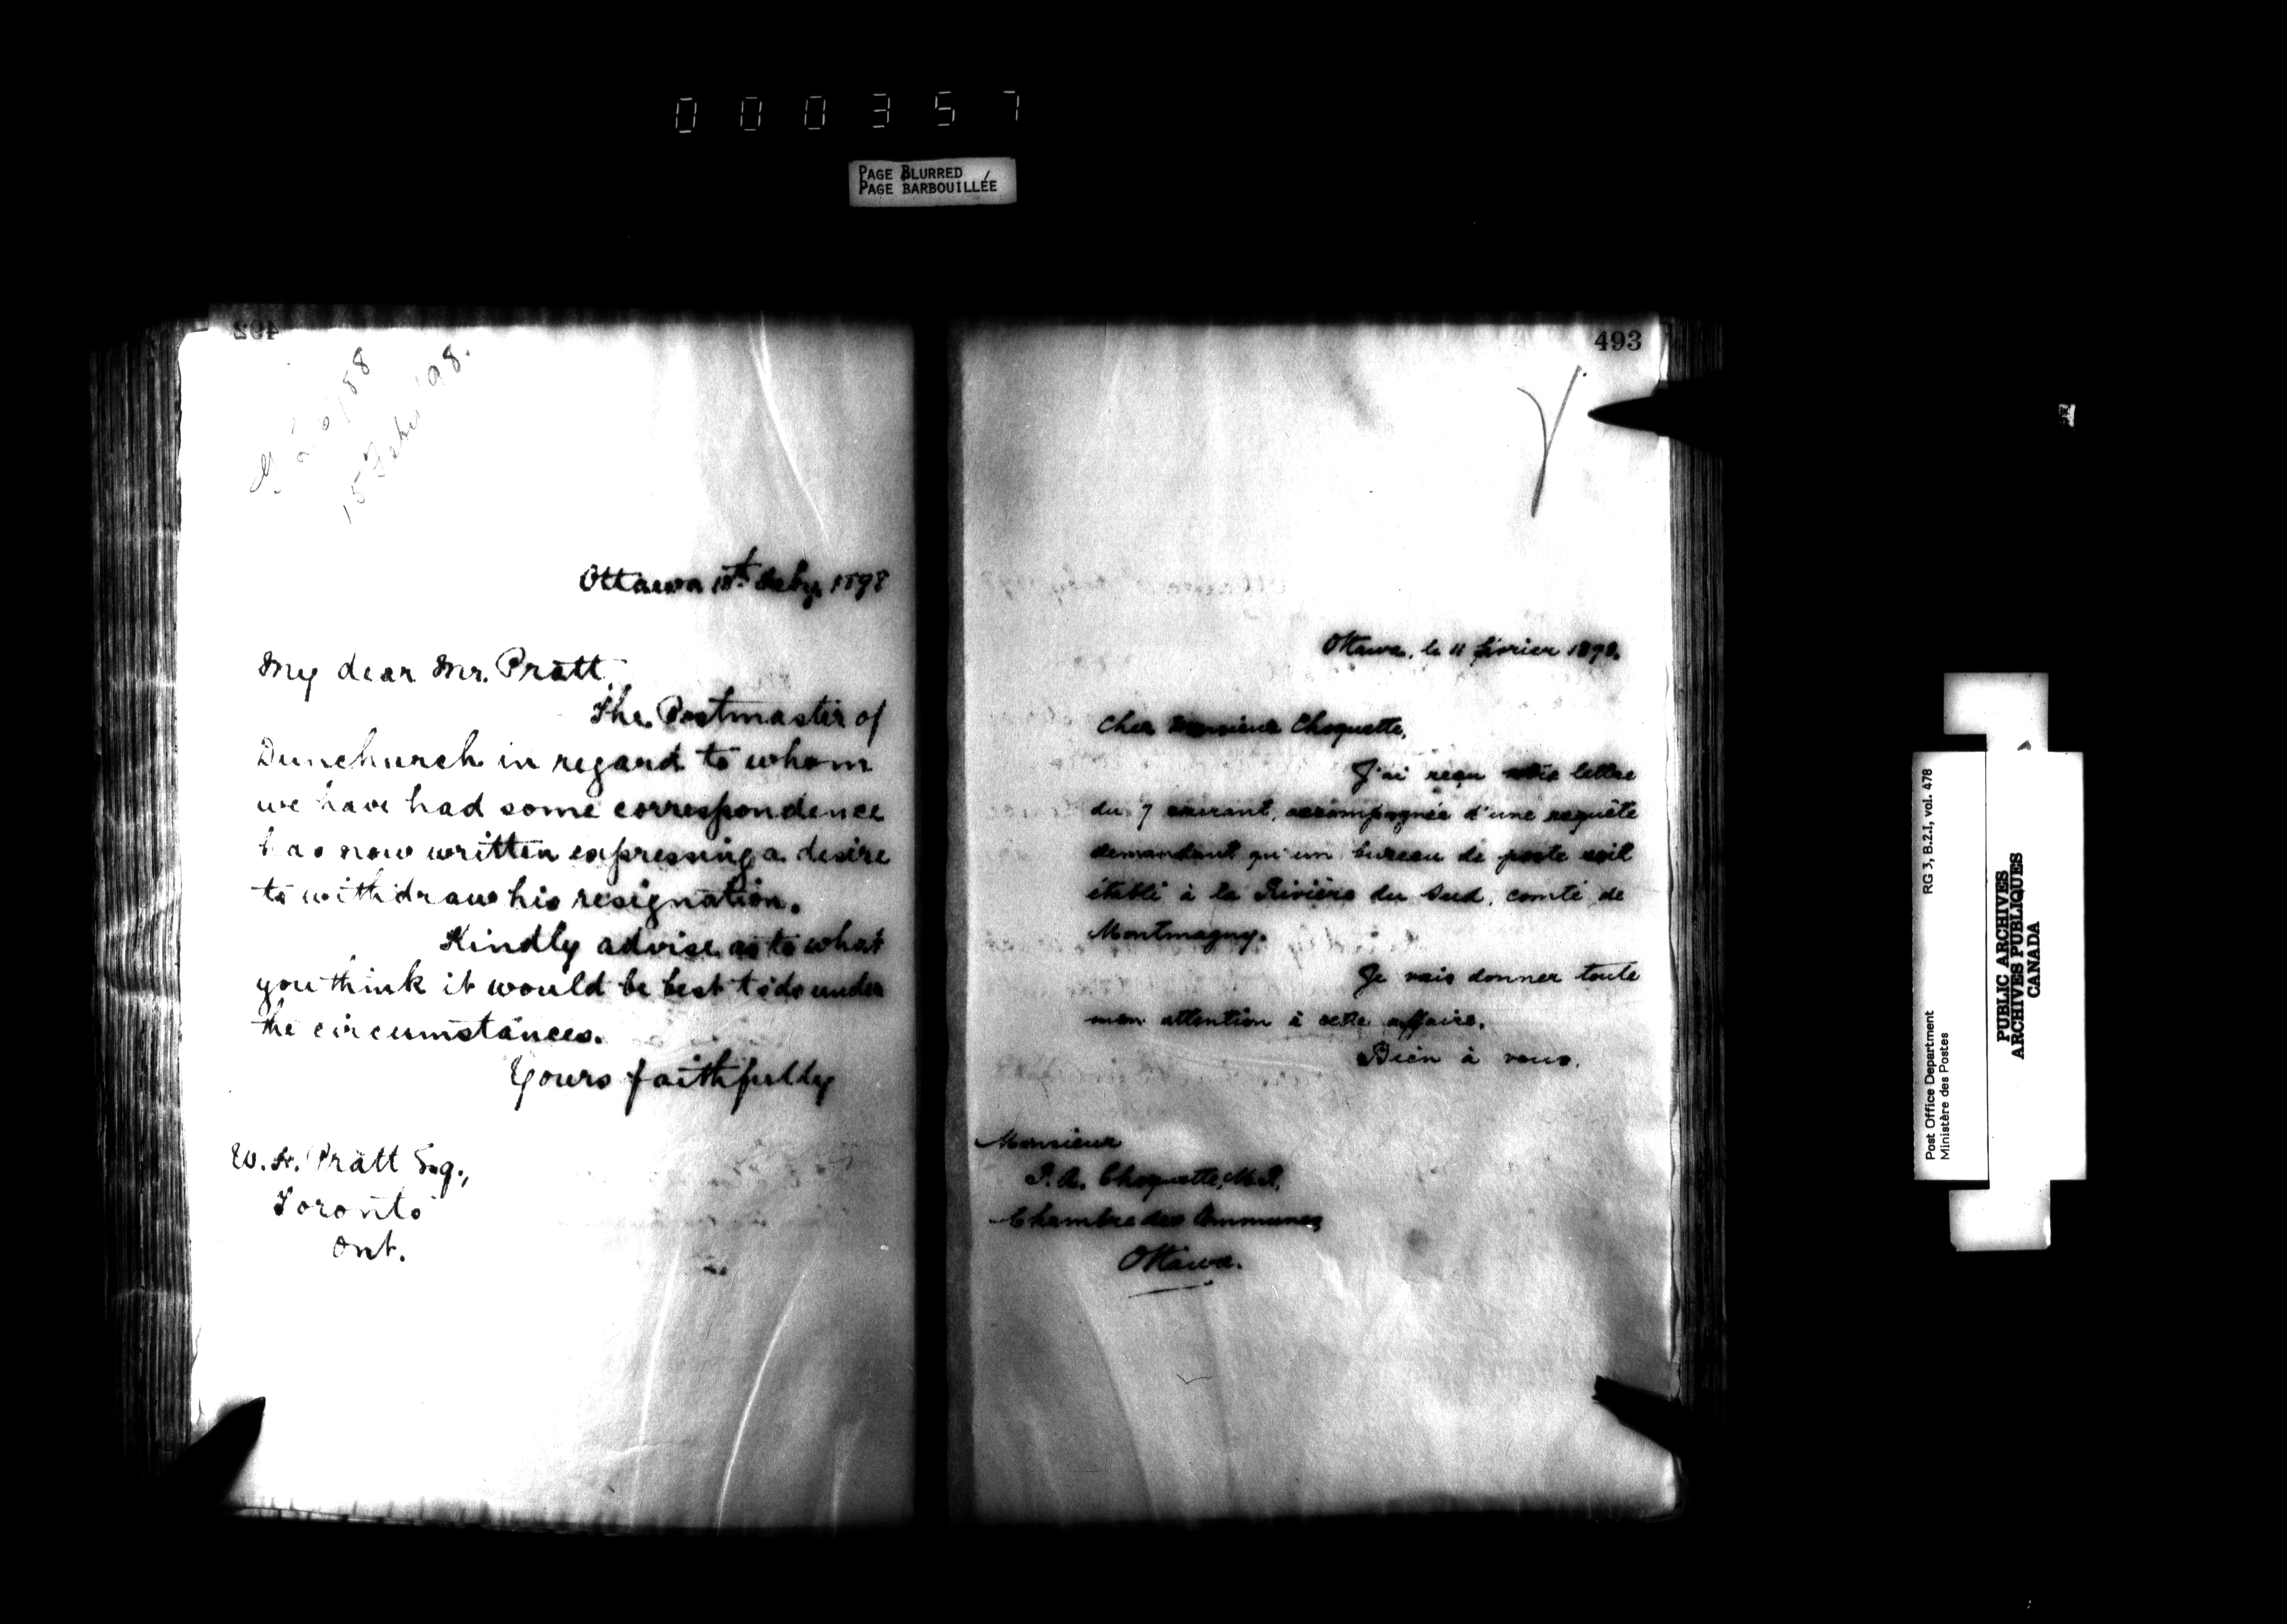 000357
PAGE BLURRED
PAGE BARBOUILLÉE
492
15 Feby '98.
Ottawa Feby, 1898
My dear Mr. Pratt,
The Postmaster of
Dunchurch in regard to whom
we have had some correspondence
has now written expressing a desire
to withdraw his resignation.
Kindly advise as to what
you think it would be best to do under
the circumstances.
Yours faithfully
W. H. Pratt Esq.,
Toronto
Ont.
493
Ottawa, le 11 février 1898.
Cher Monsieur Choquette,
J'ai reçu votre lettre
du 7 courant, accompagnée d'une requête
demandant qu'un bureau de poste soit
établi à la Rivière du Sud, comté de
Montmagny.
Je vais donner toute
mon attention à cette affaire.
Bien à vous,
Monsieur
P. A. Choquette, M.P.
Chambre des Communes
Ottawa.
Post Office Department RG 3, B.2.I, vol. 478
Ministère des Postes
PUBLIC ARCHIVES
ARCHIVES PUBLIQUES
CANADA